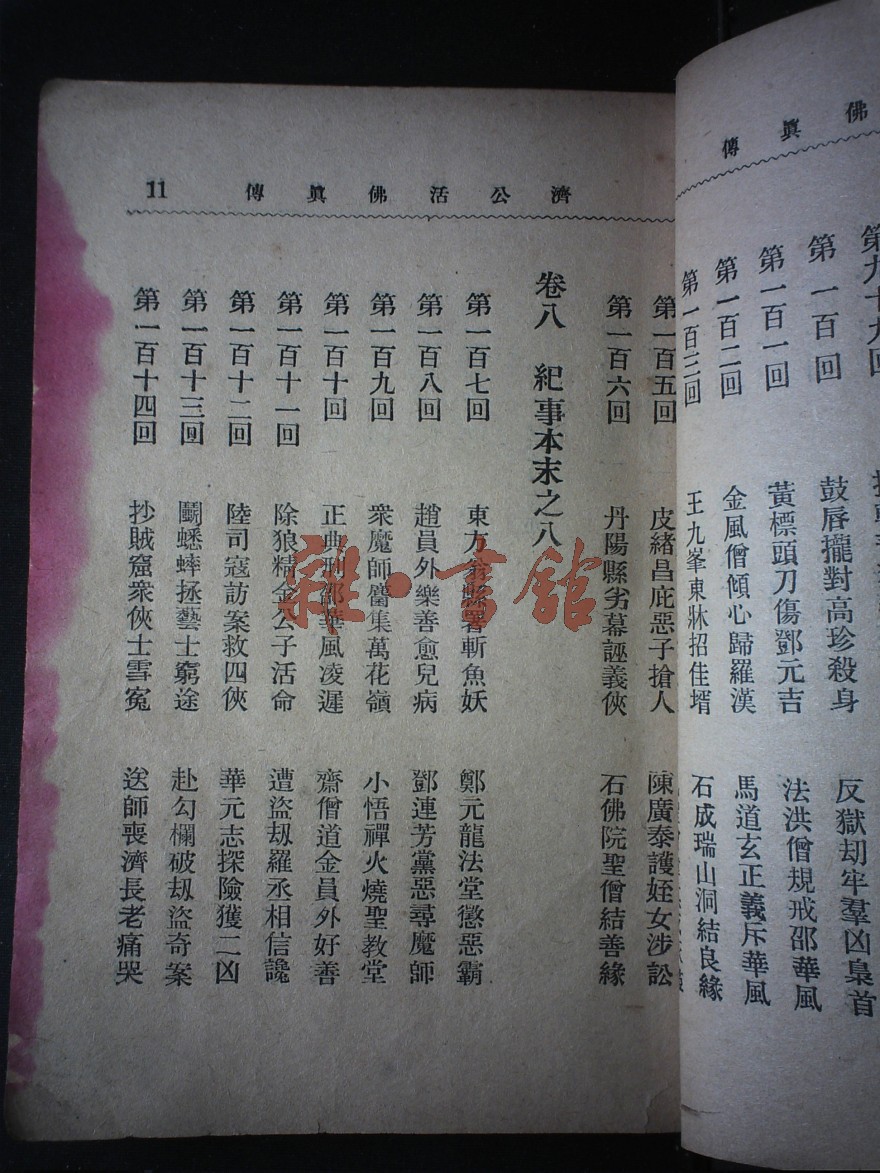 佛眞傳
第九十九回
第一百回 鼓唇攏對高珍殺身 反獄刦牢羣凶梟首
第一百一回 黃標頭刀傷鄧元吉 法洪僧規戒邵華風
第一百二回 金風僧傾心歸羅漢 馬道玄正義斥華風
第一百三回 王九峯東牀招佳壻 石成瑞山洞結良緣
濟公活佛眞傳 11
第一百五回 皮緒昌庇惡子搶人 陳廣泰護姪女涉訟
第一百六回 丹陽縣劣幕誣義俠 石佛院聖僧結善緣
卷八 紀事本末之八
第一百七回 東方翁縣署斬魚妖 鄭元龍法堂懲惡霸
第一百八回 趙員外樂善愈兒病 鄧連芳黨惡尋魔師
第一百九回 衆魔師麕集萬花嶺 小悟禪火燒聖教堂
第一百十回 正典刑邵華風凌遲 齋僧道金員外好善
第一百十一回 除狼精金公子活命 遭盜刦羅丞相信讒
第一百十二回 陸司寇訪案救四俠 華元志探險獲二凶
第一百十三回 鬭蟋蟀拯藝士窮途 赴勾欄破刦盜奇案
第一百十四回 抄賊窟衆俠士雪冤 送師喪濟長老痛哭
雜·書館